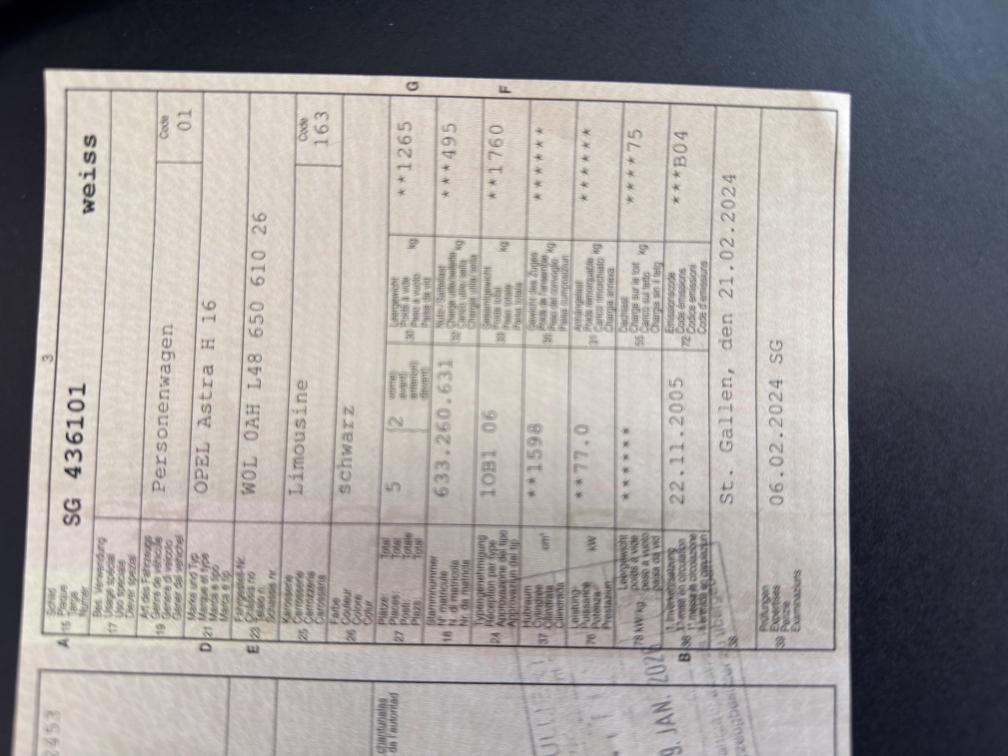 3
A 15 Schild
Plaque
Targa
SG 436101 weiss
17 Bes. Verwendung
Usage spécial
Uso speciale
Diever spezial
19 Art des Fahrzeugs
Genre de véhicule
Genere di veicolo
Gener dal vehichel
Personenwagen
Code
01
D 21 Marke und Typ
Marque et type
Marca e tipo
Marca e tip
OPEL Astra H 16
E 23
Châssis no
Telaio n.
Schassis nr.
W0L 0AH L48 650 610 26
25 Karosserie
Carrosserie
Carrozzeria
Carossaria
Limousine
Code
163
26 Farbe
Couleur
Colore
Colur
schwarz
27 Plätze: Total
Places: Total
Posti: Totale
Plazs: Total
5 (2
vorne)
avant)
anteriori)
davant)
30 Leergewicht
Poids à vide
Peso a vuoto
Paisa da vid
kg
**1265 G
18 Stammnummer
N° matricule
N. di matricola
Nr. da matricla
633.260.631
32 Nutz-/Sattellast
kg
***495
24 Typengenehmigung
Réception par type
Approvazione del tipo
Approvaziun dal tip
1OB1 06
33 Gesamtgewicht
Poids total
Peso totale
Paisa totala
kg
**1760 F
37 Hubraum
Cylindrée
Cilindrata
cm³
**1598
35 Gewicht des Zuges
Poids de l'ensemble
Peso del convoglio
Paisa cumposiziun
kg
******
76 Leistung
Puissance
Potenza
Prestaziun
kW
**77.0
31 Anhängelast
Poids remorquable
Carico rimorchiato
Chargia annexa
kg
******
78 kW/kg Leergewicht
poids à vide
peso a vuoto
paisa da vid
******
55 Dachlast
Charge sur le toit
Carico sul tetto
Chargia sin il tetg
kg
****75
B 36 1. Inverkehrsetzung
1re mise en circulation
1. messa in circolazione
22.11.2005
72 Emissionscode
Code émissions
Codice emissioni
Code d'emissiuns
***B04
38
St. Gallen, den 21.02.2024
39 Prüfungen
Expertises
Perizie
Examinaziuns
06.02.2024 SG
2453
chantunales
da l'autoritad
9. JAN. 202